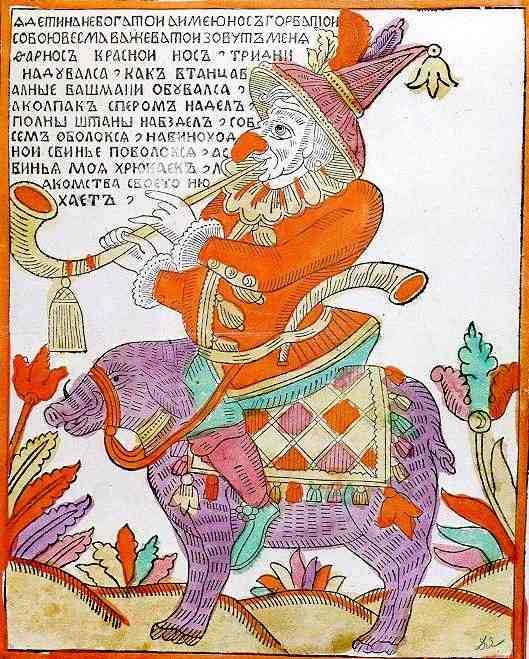 Я ДЕТИНА НЕБОГАТОИ А ИМЕЮ НОСЪ ГОРБАТИОИ
СОБОЮ ВЕСМА ВАЖЕВАТОИ ЗОВУТЪ МЕНЯ
ФАРНОСЪ КРАСНОИ НОСЪ , ТРИ ДНИ
НАДУВАЛСА , КАКЪ В ТАНЦАВ
АЛНЫЕ БАШМАКИ ОБУВАЛСА ,
А КОЛПАК СПЕРОМЪ НАДЕЛЪ ,
ПОЛНЫ ШТАНЫ НАБЗДЕЛЪ , СОВ
СЕМЪ ОБОЛОКСА , НАВИНОХОД
НОИ СВИНЬЕ ПОВОЛОКСЯ , АС
ВИНЬЯ МОЯ ХРЮКАЕТЪ , Л
АКОМСТВА СВОЕГО НЮ
ХАЕТЪ ,